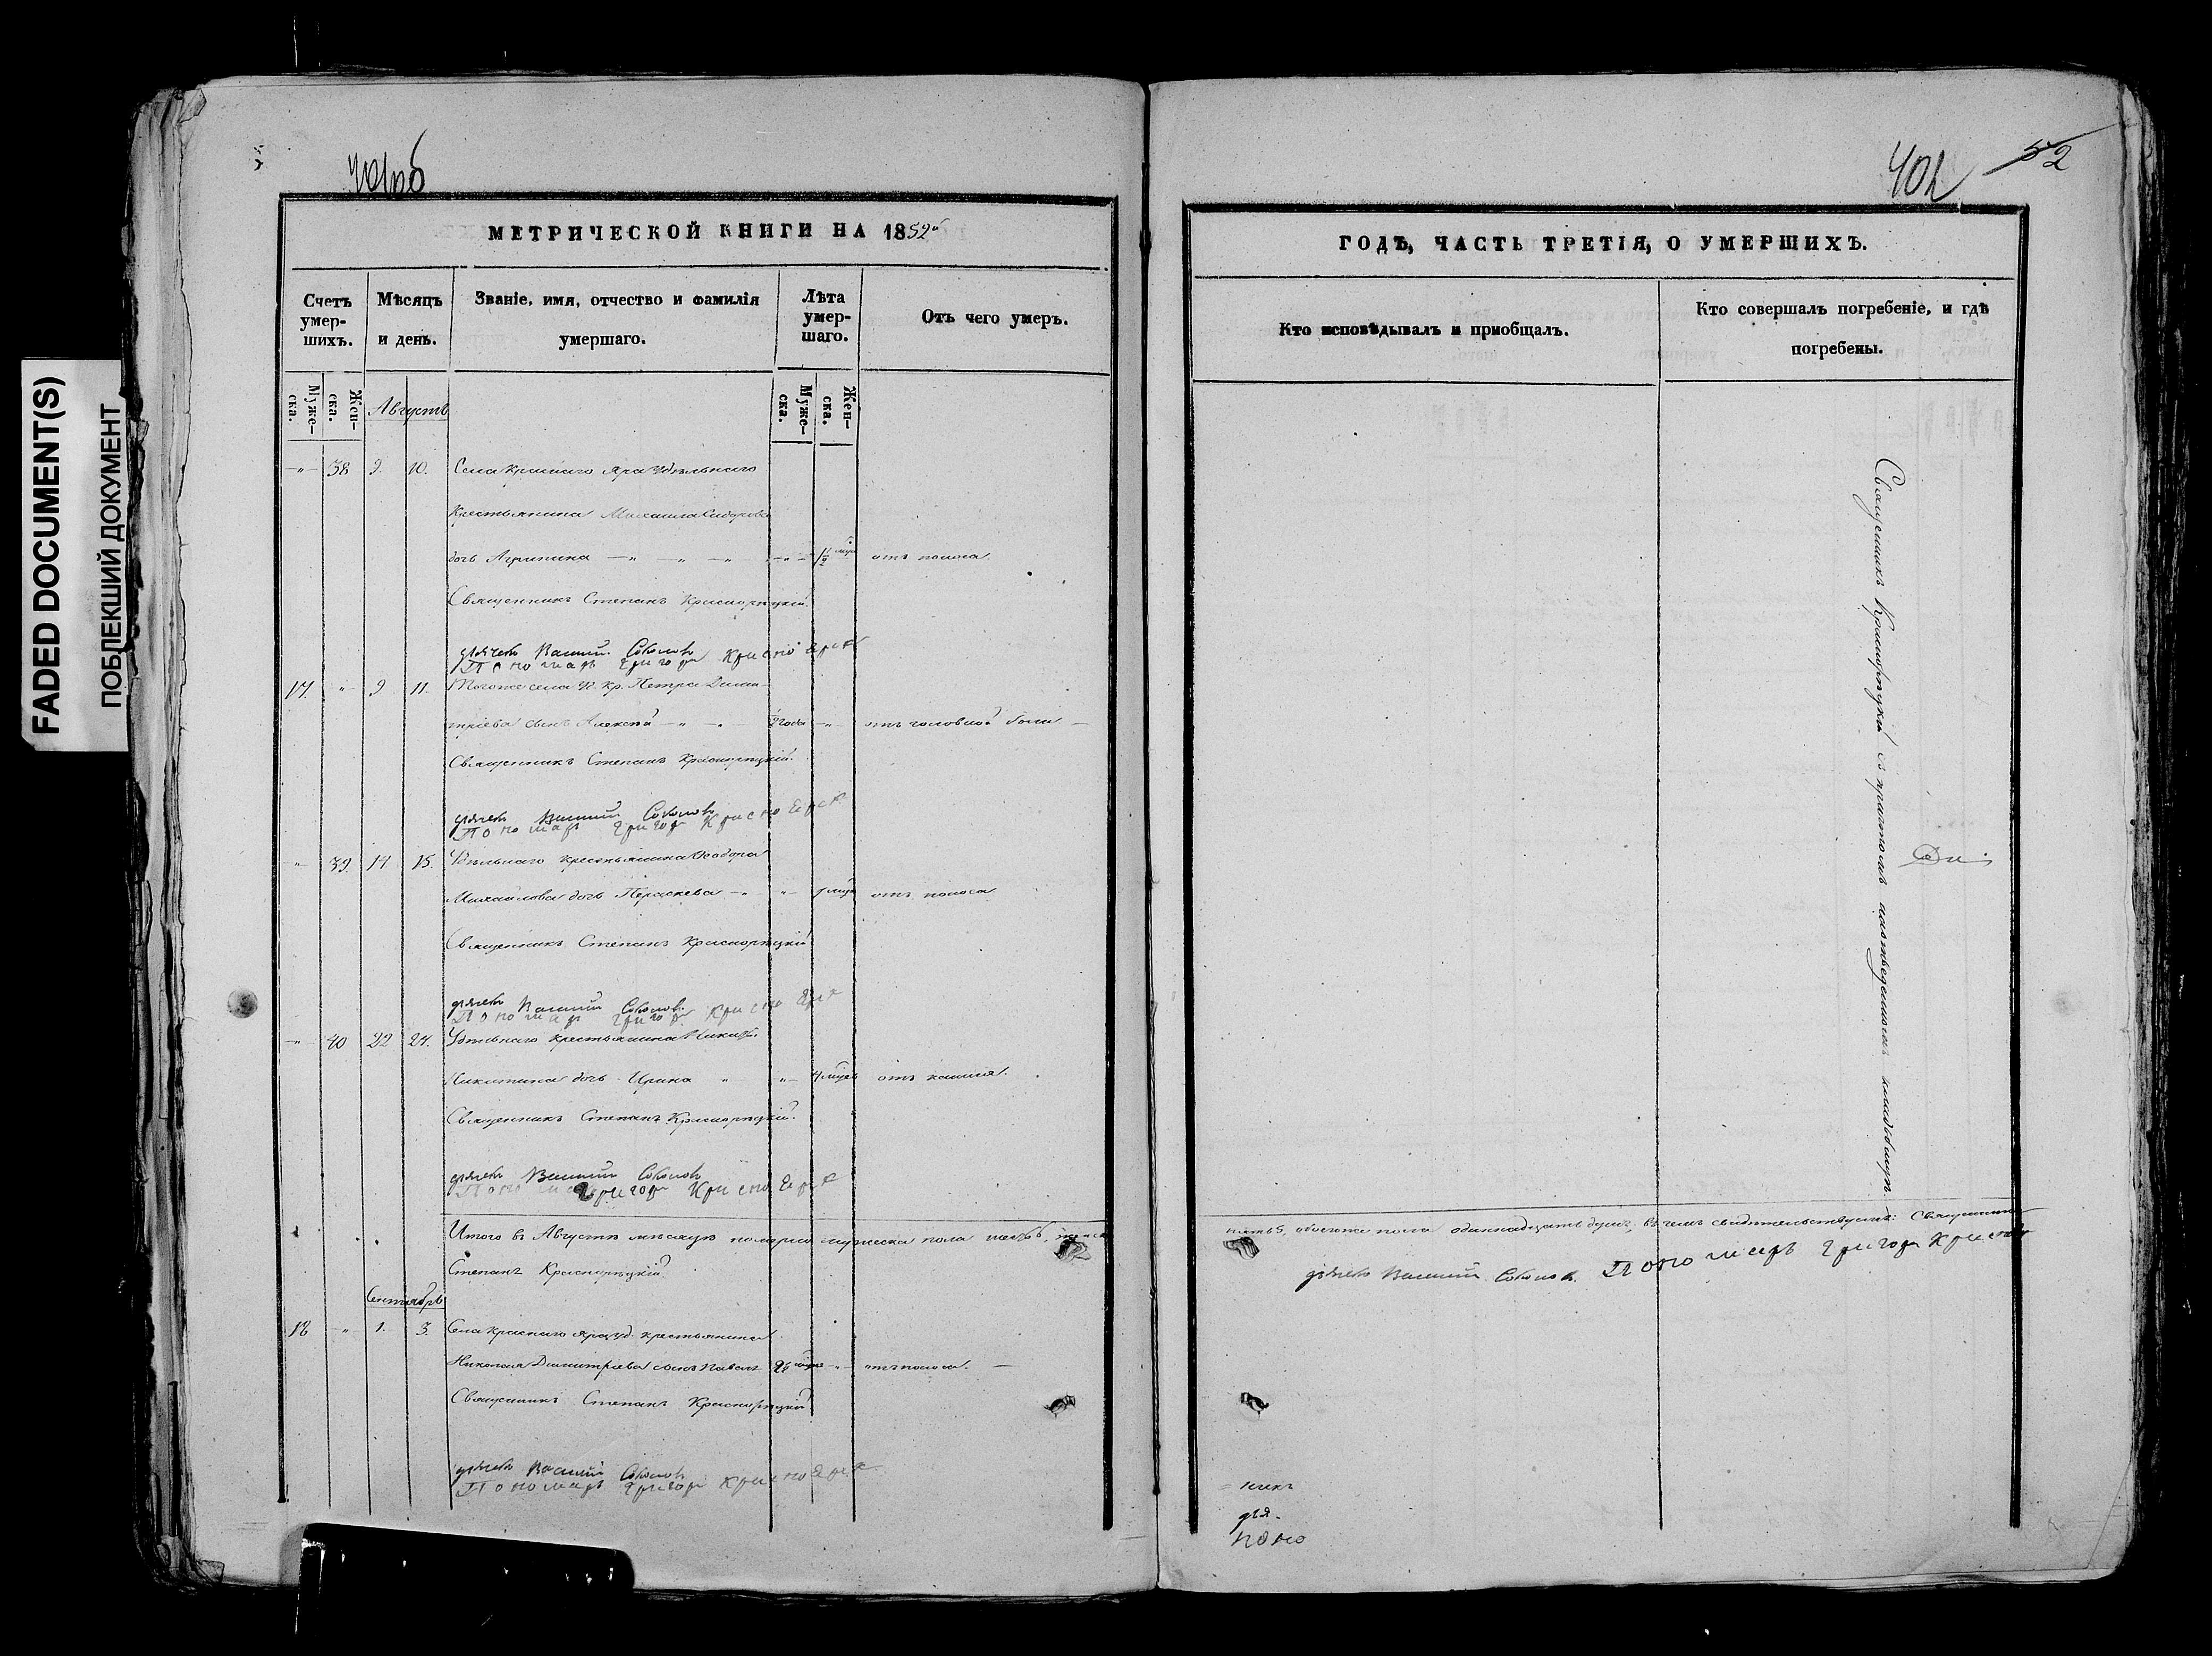 FADED DOCUMENT(S)
ПОБЛЕКШИЙ ДОКУМЕНТ
401об
МЕТРИЧЕСКОЙ КНИГИ НА 1852й
Счетъ умер-шихъ.
Мѣсяцъ и день.
Званіе, имя, отчество и фамилія умершаго.
Лѣта умер-шаго.
Отъ чего умеръ.
Муже-ска.
Жен-ска.
Августъ
Муже-ска.
Жен-ска.
-"- 38 9. 10. Села Краснаго Яра Удѣльнаго
Крестьянина Михаила Сидорова
дочь Агрипина -"- -"- -"- отъ поноса
Священникъ Степанъ Краснорѣцкій.
дьячекъ Василий Соколовъ
Пономарь Григор Красно Ярск
17. -"- 9 11. Тогоже села У. кр. Петра Дими-
тріева сынъ Алексѣй -"- -"- года -"- отъ головной боли -
Священникъ Степанъ Краснорѣцкій.
дьячекъ Василий Соколовъ
Пономарь Григор Красно Ярск
" 39. 14 15. Удѣльнаго крестьянина Ѳеодора
Михайлова дочь Параскева -"- "- 1 мца отъ поноса
Священникъ Степанъ Краснорѣцкій
дьячекъ Василий Соколовъ
Пономарь Григор Красно Ярск
-"- 40 22 24. Удѣльнаго крестьянина Никиты
Никитина дочь Ирина " "- отъ кашля.
Священникъ Степанъ Краснорѣцкій.
дьячекъ Василий Соколовъ
Пономарь Григор Красно Ярск
Итого въ Августѣ мѣсяцѣ померло мужеска пола шесть 6, женска
Степанъ Краснорѣцкій
Сентябрь
18 -"- 1. 3. Села Краснаго Яра уд. крестьянина
Николая Димитріева сынъ Павелъ -"- отъ поноса. -
Священникъ Степанъ Краснорѣцкій
дьячекъ Василий Соколовъ
Пономарь Григор Красно Ярск
402 52
ГОДЪ, ЧАСТЬ ТРЕТІЯ, О УМЕРШИХЪ.
Кто исповѣдывалъ и пріобщалъ.
Кто совершалъ погребеніе, и гдѣ погребены.
Священникъ Краснорѣцкій съ причтомъ на отведенномъ кладбищѣ.
пять 5, обоегоже пола одиннадцать душъ, въ чемъ свидѣтельствуемъ: Священникъ
дьячекъ Василий Соколовъ. Пономарь Григор Красно
никъ
дья-
поно